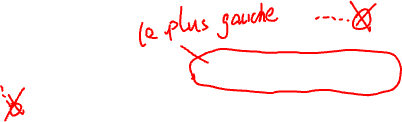 le plus gauche